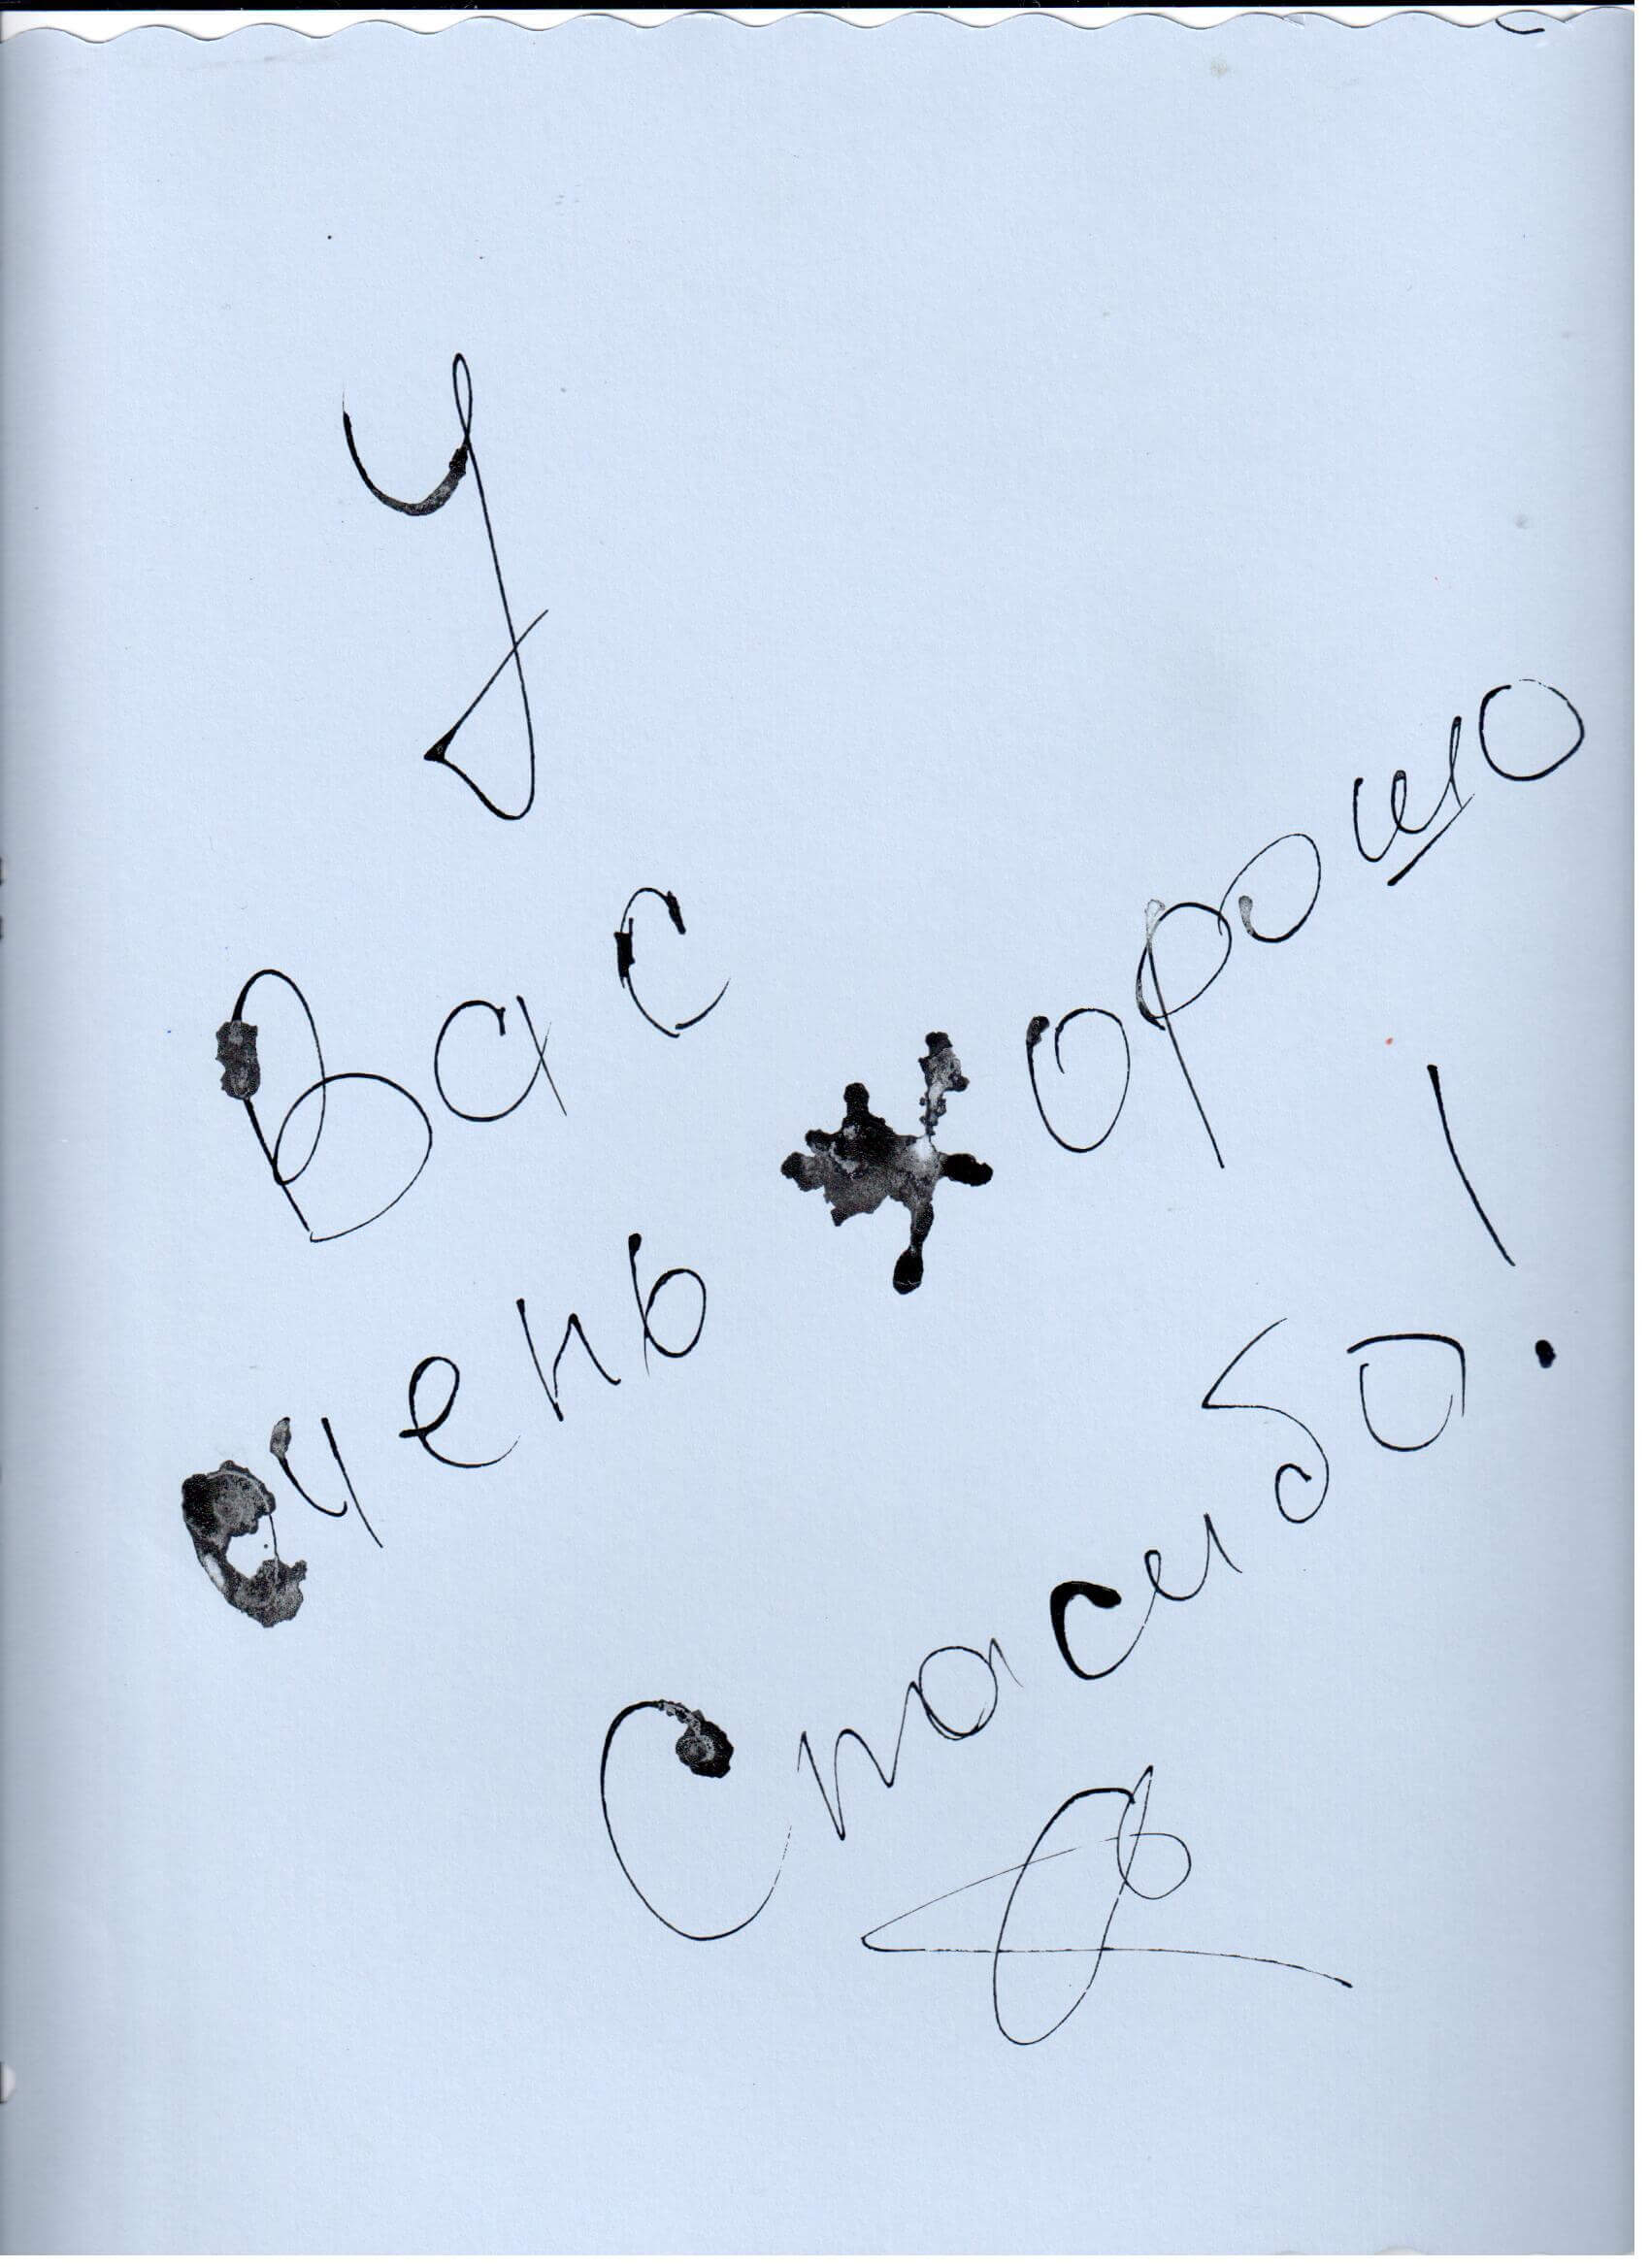 У
Вас
очень хорошо
Спасибо!